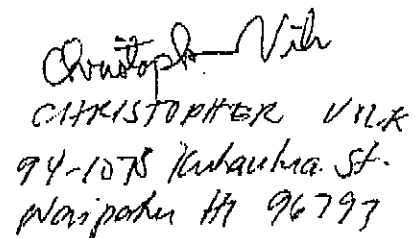 Christoph Vilk
CHRISTOPHER VILK
94-1075 St.
Waipahu HI 96797